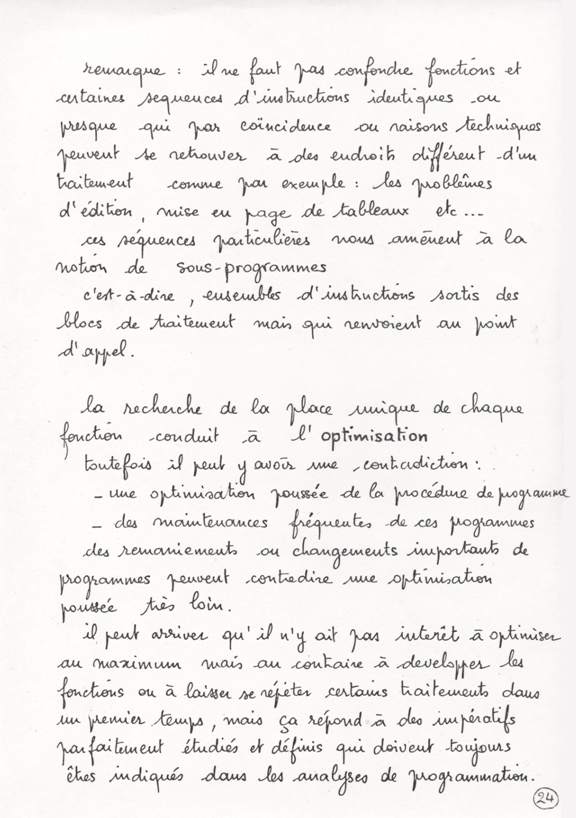 remarque : il ne faut pas confondre fonctions et
certaines sequences d'instructions identiques ou
presque qui par coïncidence ou raisons techniques
peuvent se retrouver à des endroits différent d'un
traitement comme par exemple : les problêmes
d'édition, mise en page de tableaux etc...
ces séquences particulières nous amènent à la
notion de sous-programmes
c'est-à-dire, ensembles d'instructions sortis des
blocs de traitement mais qui renvoient au point
d'appel.
la recherche de la place unique de chaque
fonction conduit à l'optimisation
toutefois il peut y avoir une contradiction :
- une optimisation poussée de la procédure de programme
- des maintenances fréquentes de ces programmes
des remaniements ou changements importants de
programmes peuvent contredire une optimisation
poussée très loin.
il peut arriver qu'il n'y ait pas interêt à optimiser
au maximum mais au contraire à developper les
fonctions ou à laisser se répéter certains traitements dans
un premier temps, mais ça répond à des impératifs
parfaitement étudiés et définis qui doivent toujours
êtres indiqués dans les analyses de programmation.
24